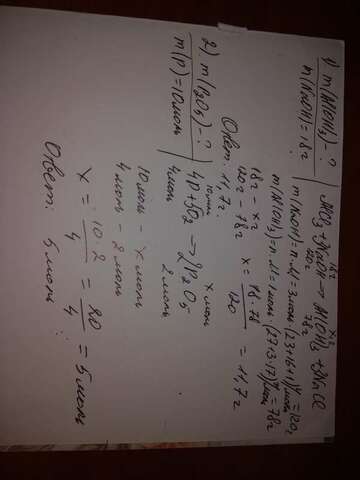 1) m(Al(OH)3) - ?
m(NaOH) = 18г
18г xг
AlCl3 + 3NaOH → Al(OH)3 + 3NaCl
120г 78г
m(NaOH) = n·M = 3моль·(23+16+1)г/моль = 120г
m(Al(OH)3) = n·M = 1моль·(27+3·17)г/моль = 78г
18г - xг
120г - 78г
x = 18·78 / 120 = 11,7г
Ответ: 11,7г.
2) m(P2O5) - ?
m(P) = 10моль
10моль x моль
4P + 5O2 → 2P2O5
4моль 2моль
10моль - x моль
4моль - 2моль
x = 10·2 / 4 = 20 / 4 = 5моль
Ответ: 5моль